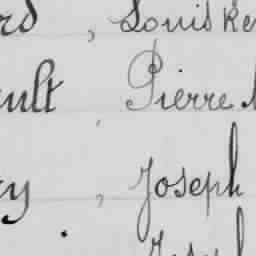 rd , Louis Re
ult , Pierre
ry , Joseph